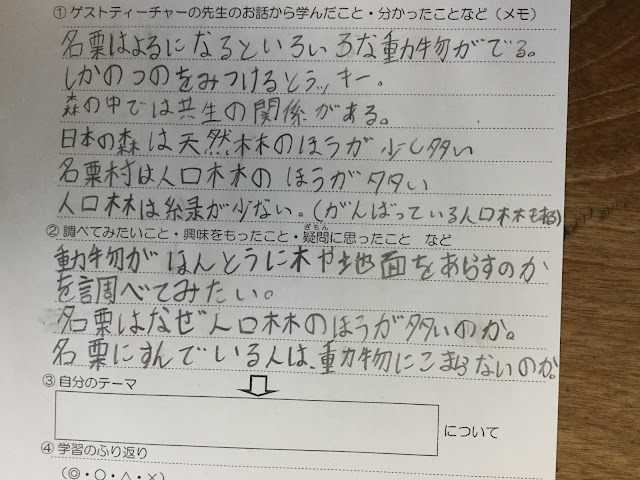 ① ゲストティーチャーの先生のお話から学んだこと・分かったことなど(メモ)
名栗はよるになるといろいろな動物がでる。
しかのつのをみつけるとラッキー。
森の中では共生の関係がある。
日本の森は天然林のほうが少し多い
名栗村は人口林のほうが多い
人口林は緑が少ない。(がんばっている人口林もある)
② 調べてみたいこと・興味をもったこと・疑問に思ったこと など
ぎもん
動物がほんとうに木や地面をあらすのか
を調べてみたい。
名栗はなぜ人口林のほうが多いのか。
名栗にすんでいる人は、動物にこまらないのか。
③ 自分のテーマ
について
④ 学習のふり返り
(◎・○・△・×)